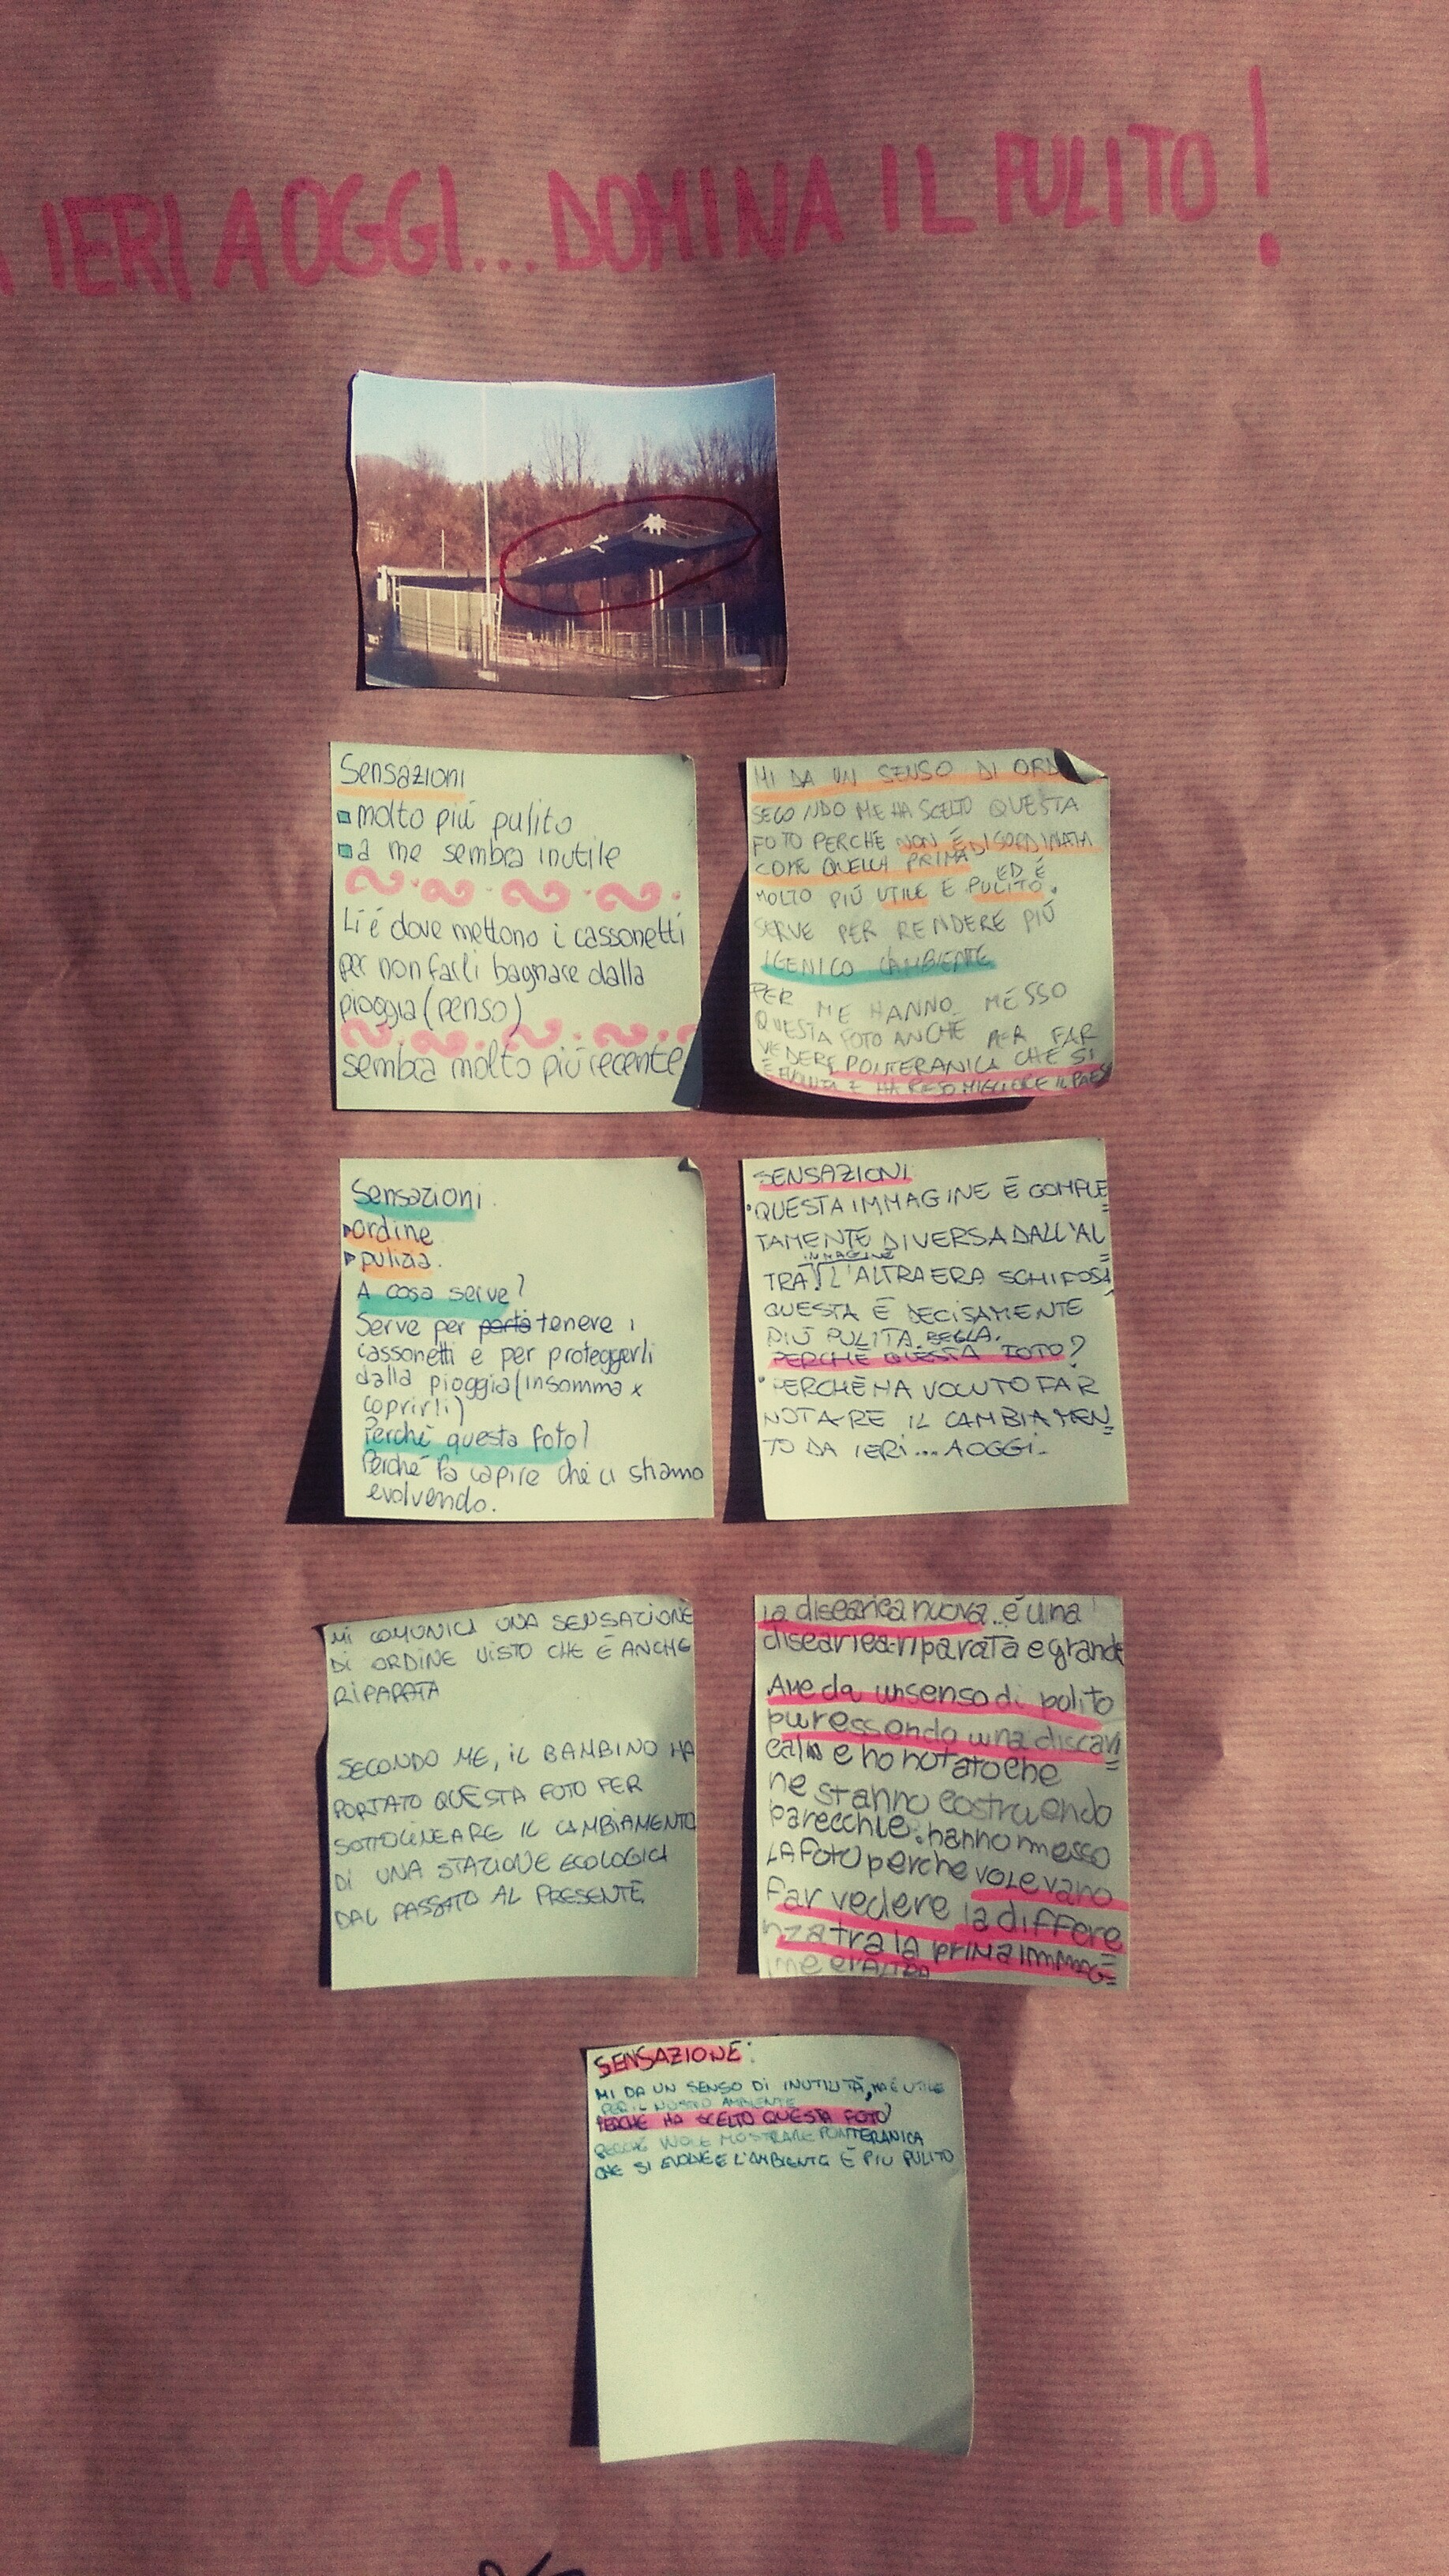 A IERI A OGGI... DOMINA IL PULITO!
Sensazioni
molto più pulito
a me sembra inutile
Lì é dove mettono i cassonetti
per non farli bagnare dalla
pioggia (penso)
sembra molto più recente
MI DA UN SENSO DI ORD
SECONDO ME HA SCELTO QUESTA
FOTO PERCHÈ NON È DISORDINATA
COME QUELLA PRIMA ED È
MOLTO PIÚ UTILE E PULITO.
SERVE PER RENDERE PIÚ
IGENICO L'AMBIENTE
PER ME HANNO MESSO
QUESTA FOTO ANCHE PER FAR
VEDERE PONTERANICA CHE SI
È EVOLUTA E HA RESO MIGLIERE IL PAES
Sensazioni.
ordine
pulizia.
A cosa serve?
Serve per tenere i
cassonetti e per proteggerli
dalla pioggia (insomma x
coprirli)
Perchè questa foto?
Perchè fa capire che ci stiamo
evolvendo.
SENSAZIONI
• QUESTA IMMAGINE È COMPLE=
TAMENTE DIVERSA DALL'AL=
IMMAGINE
TRA L'ALTRA ERA SCHIFOSA,
QUESTA È DECISAMENTE
PIÙ PULITA, BELLA.
PERCHÈ QUESTA FOTO?
• PERCHÈ HA VOLUTO FAR
NOTARE IL CAMBIAMEN=
TO DA IERI... A OGGI.
MI COMUNICA UNA SENSAZIONE
DI ORDINE VISTO CHE È ANCHE
RIPARATA
SECONDO ME, IL BAMBINO HA
PORTATO QUESTA FOTO PER
SOTTOLINEARE IL CAMBIAMENTO
DI UNA STAZIONE ECOLOGICA
DAL PASSATO AL PRESENTE.
la discarica nuova.. é una
discarica riparata e grande
A me da un senso di polito
pur essendo una discari=
ca e ho notato che
ne stanno costruendo
parecchie. hanno messo
LA foto perche voLevano
far vedere la differe=
nza tra la prima immag=
ine e l'ALTRA
SENSAZIONE:
MI DA UN SENSO DI INUTILITÀ, MA È UTILE
PER IL NOSTRO AMBIENTE
PERCHÈ HA SCELTO QUESTA FOTO?
PERCHÈ VUOLE MOSTRARE PONTERANICA
CHE SI EVOLVE E L'AMBIENTE È PIÙ PULITO